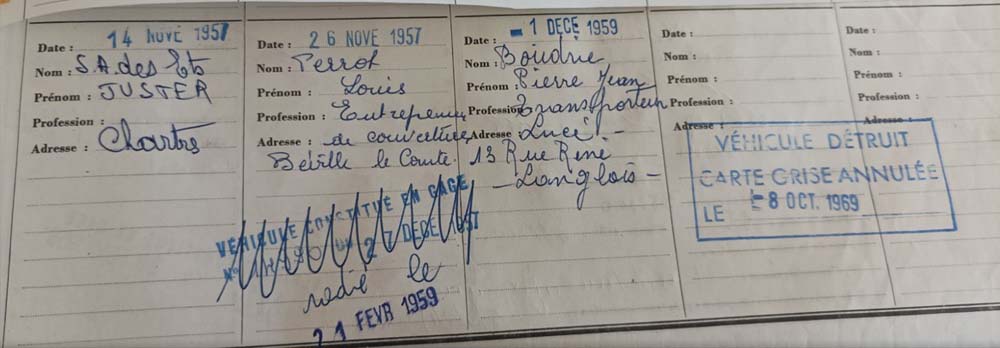 Date : 14 NOVE 1957
Nom : S.A. des Ets
Prénom : JUSTER
Profession :
Adresse : Chartres
Date : 26 NOVE 1957
Nom : Perrot
Prénom : Louis
Profession : Entrepreneur
Adresse : de couverture
Béville le Comte.
VÉHICULE CONSTITUÉ EN GAGE
27 DECE 1957
radié le
21 FEVR 1959
Date : - 1 DECE 1959
Nom : Boudrie
Prénom : Pierre Jean
Profession : Transporteur
Adresse : Lucé. -
13 Rue René
- Langlois -
Date :
Nom :
Prénom :
Profession :
Adresse :
VÉHICULE DÉTRUIT
CARTE GRISE ANNULÉE
LE - 8 OCT. 1969
Date :
Nom :
Prénom :
Profession :
Adresse :